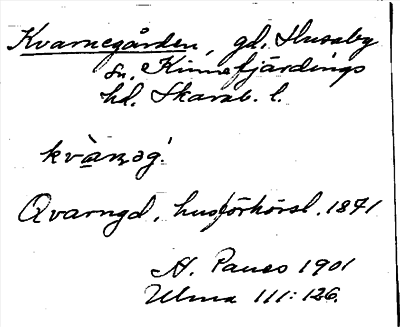 Kvarnegården, gd. Husaby
sn. Kinnefjärdings
hd. Skarab. l.
kvàṇəg!
Qvarngd, husförhörsl. 1841
H. Paues 1901
Ulma 111: 126.